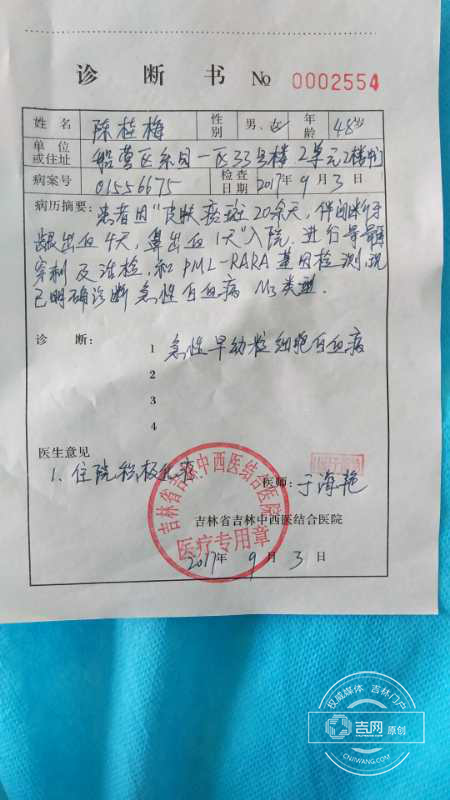 诊 断 书 No 0002554
姓 名 陈桂梅 性别 男、女 年龄 48岁
单位或住址 船营区 一区33号楼2单元2楼
病案号 01556675 检查日期 2017年9月3日
病历摘要：患者因“皮肤瘀斑20余天，伴间断牙
龈出血4天，鼻出血1天”入院．进行骨髓
穿刺及流检，和PML-RARA基因检测，现
已明确诊断急性白血病 M3类型．
诊 断： 1 急性早幼粒细胞白血病
2
3
4
医生意见
1、住院积极化疗
医师：于海艳
吉林省吉林中西医结合医院
吉林省吉林中西医结合医院
医疗专用章
2017年 9月 3日
权威媒体 吉林门户
吉网 原创
CNJIWANG.COM